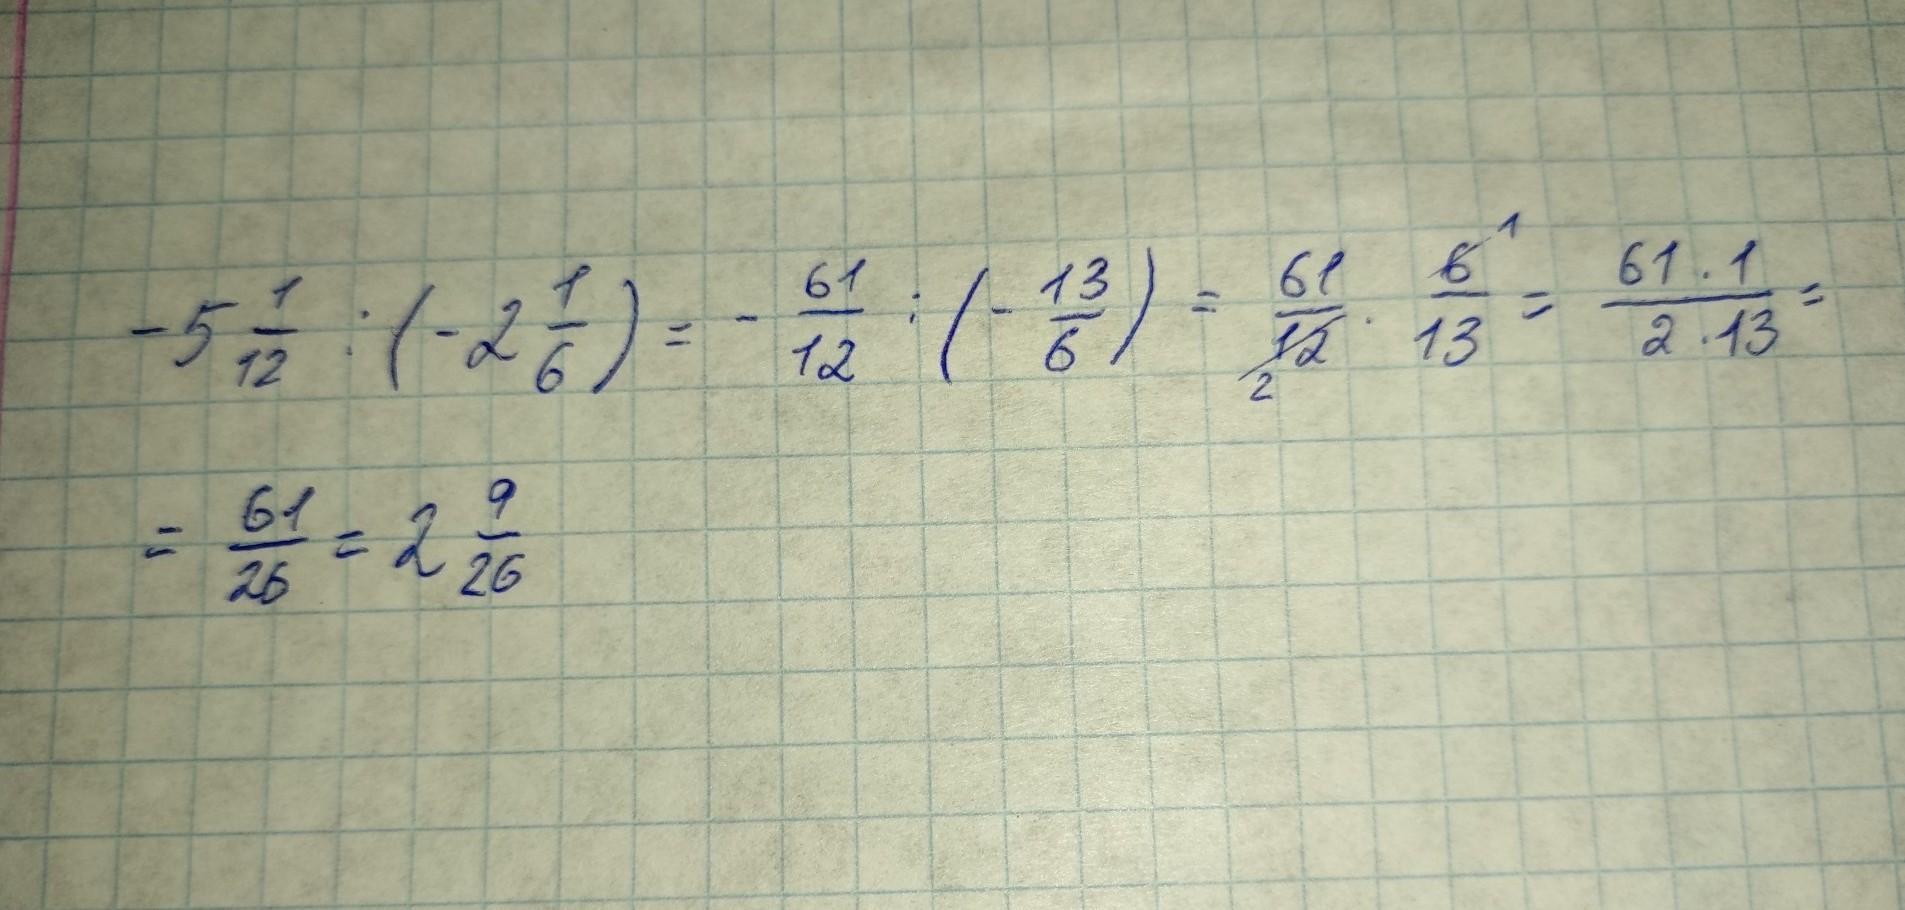 -5 1/12 : (-2 1/6) = - 61/12 : (- 13/6) = 61/12 2 · 6/13 1 = 61 · 1/2 · 13 =
= 61/26 = 2 9/26